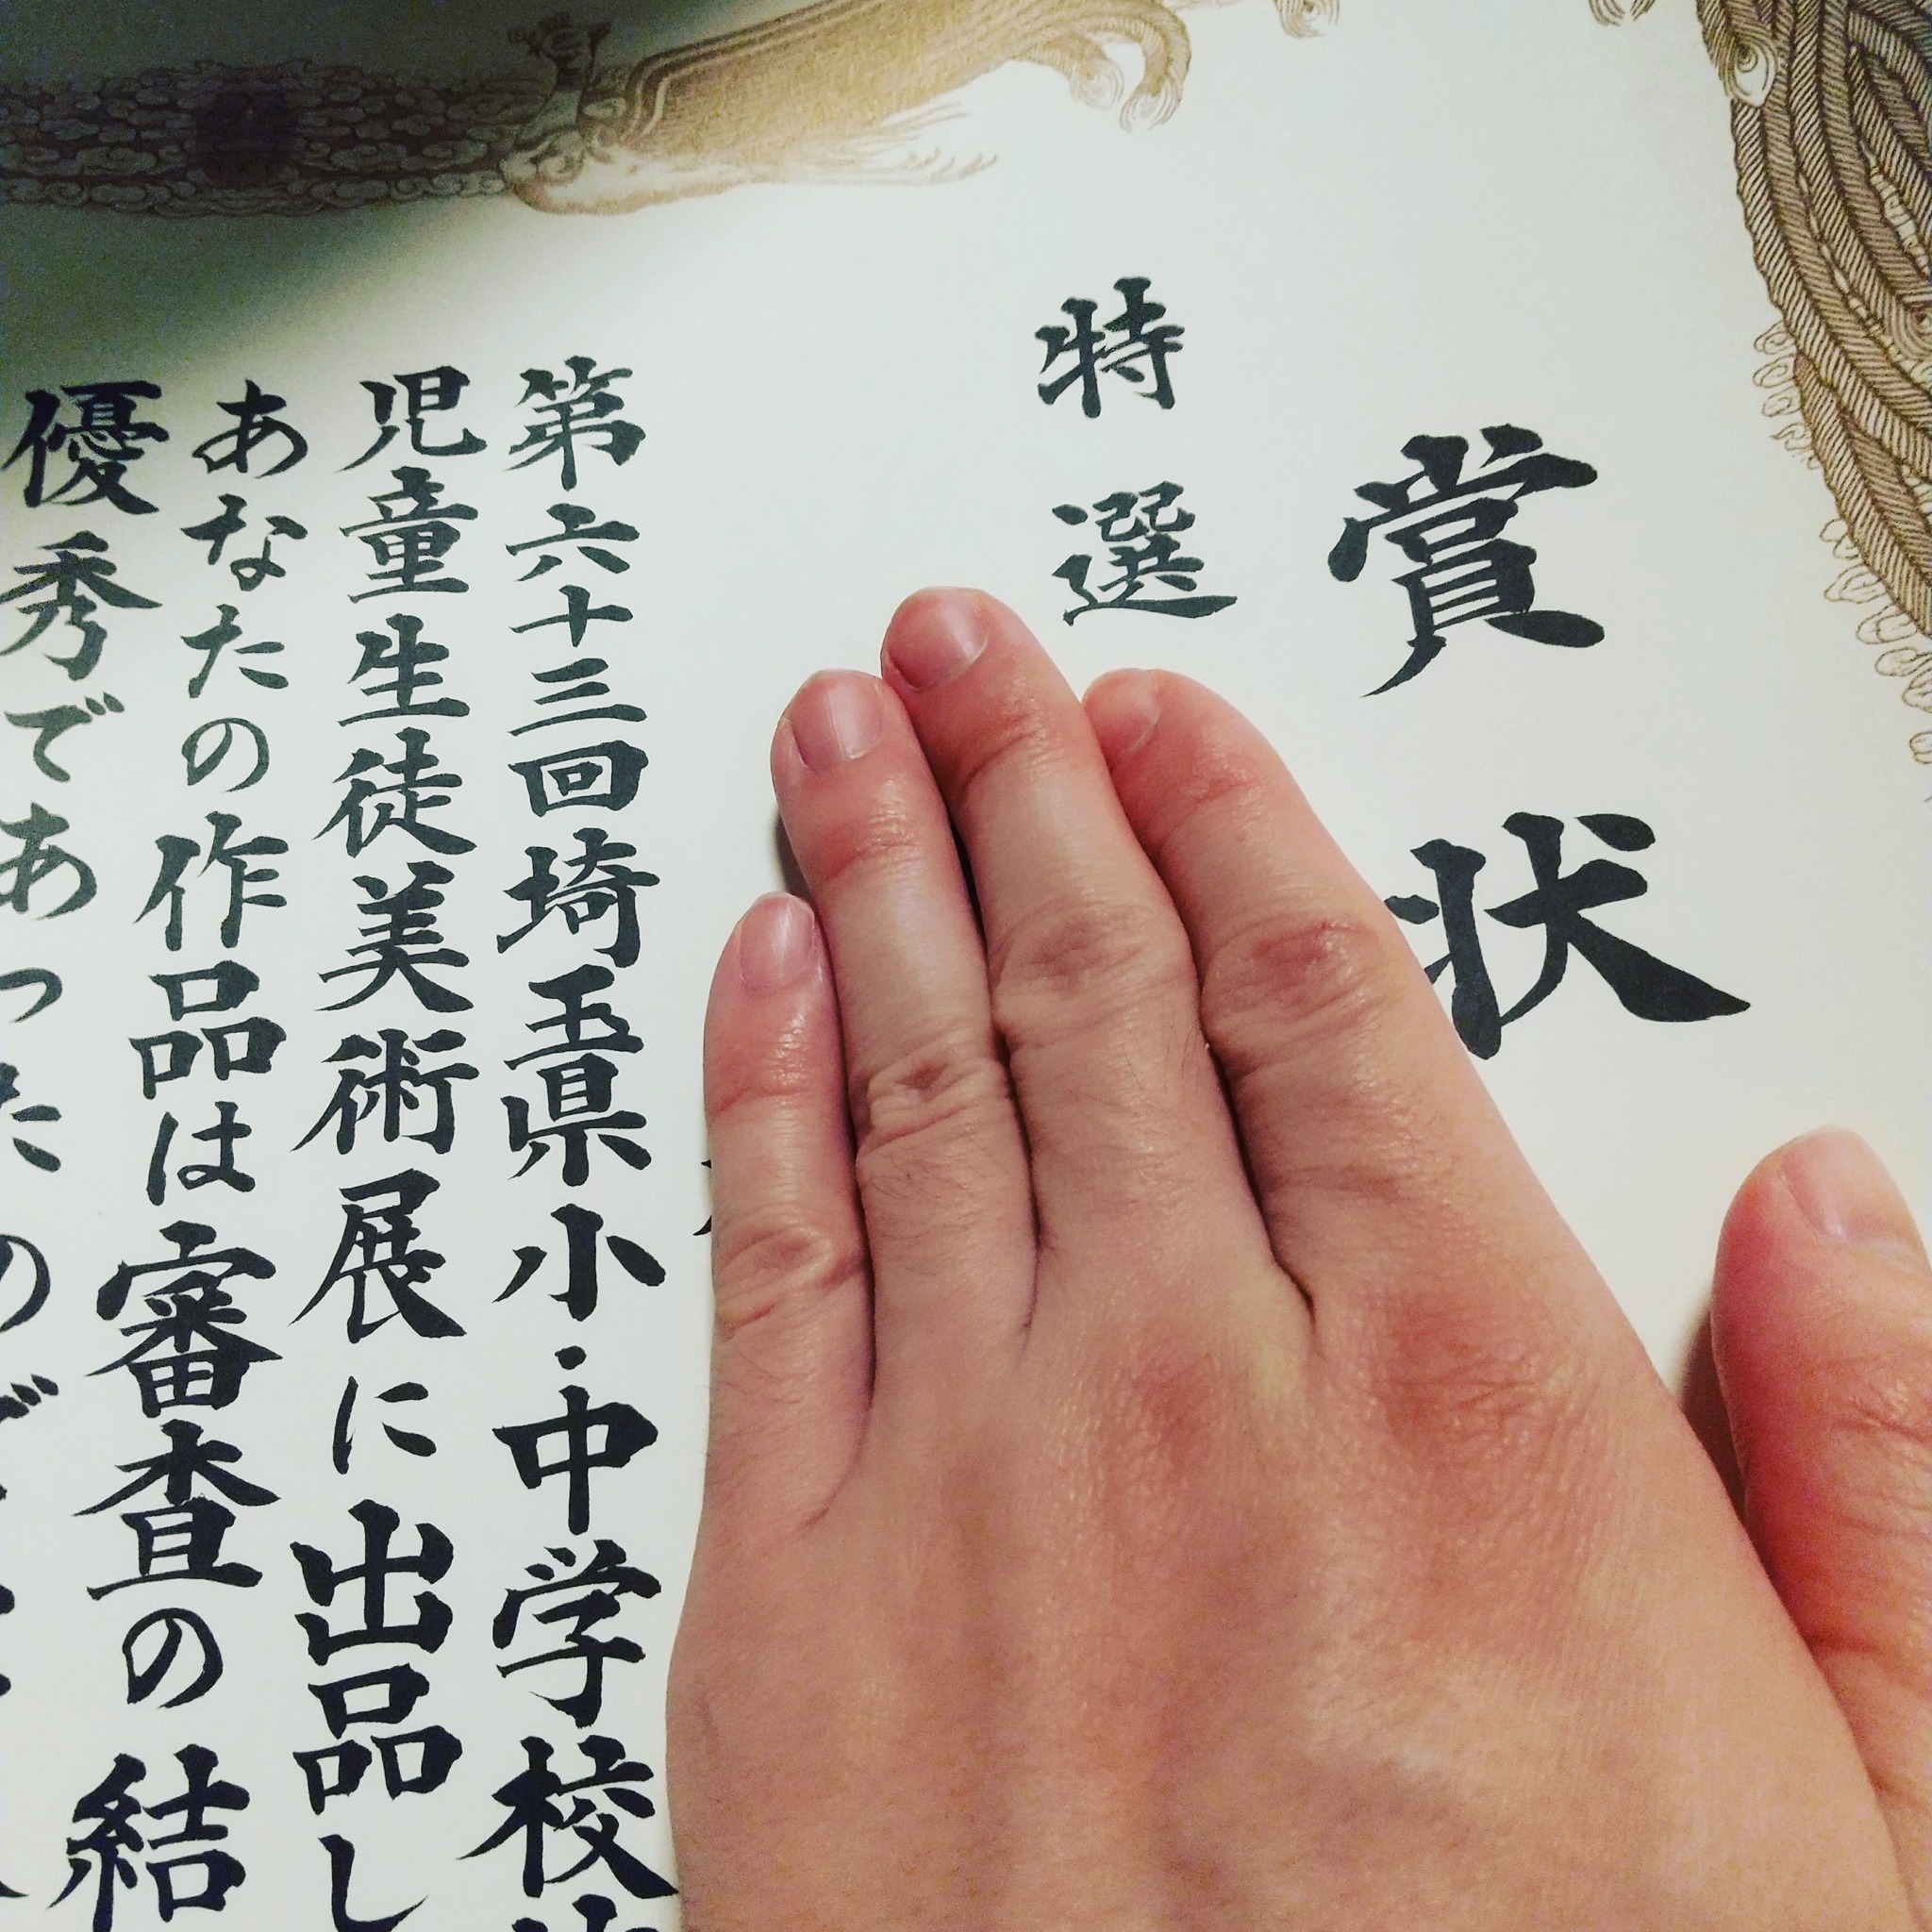 賞状
特選
第六十三回埼玉県小・中学校
児童生徒美術展に出品し
あなたの作品は審査の結
優秀であったので